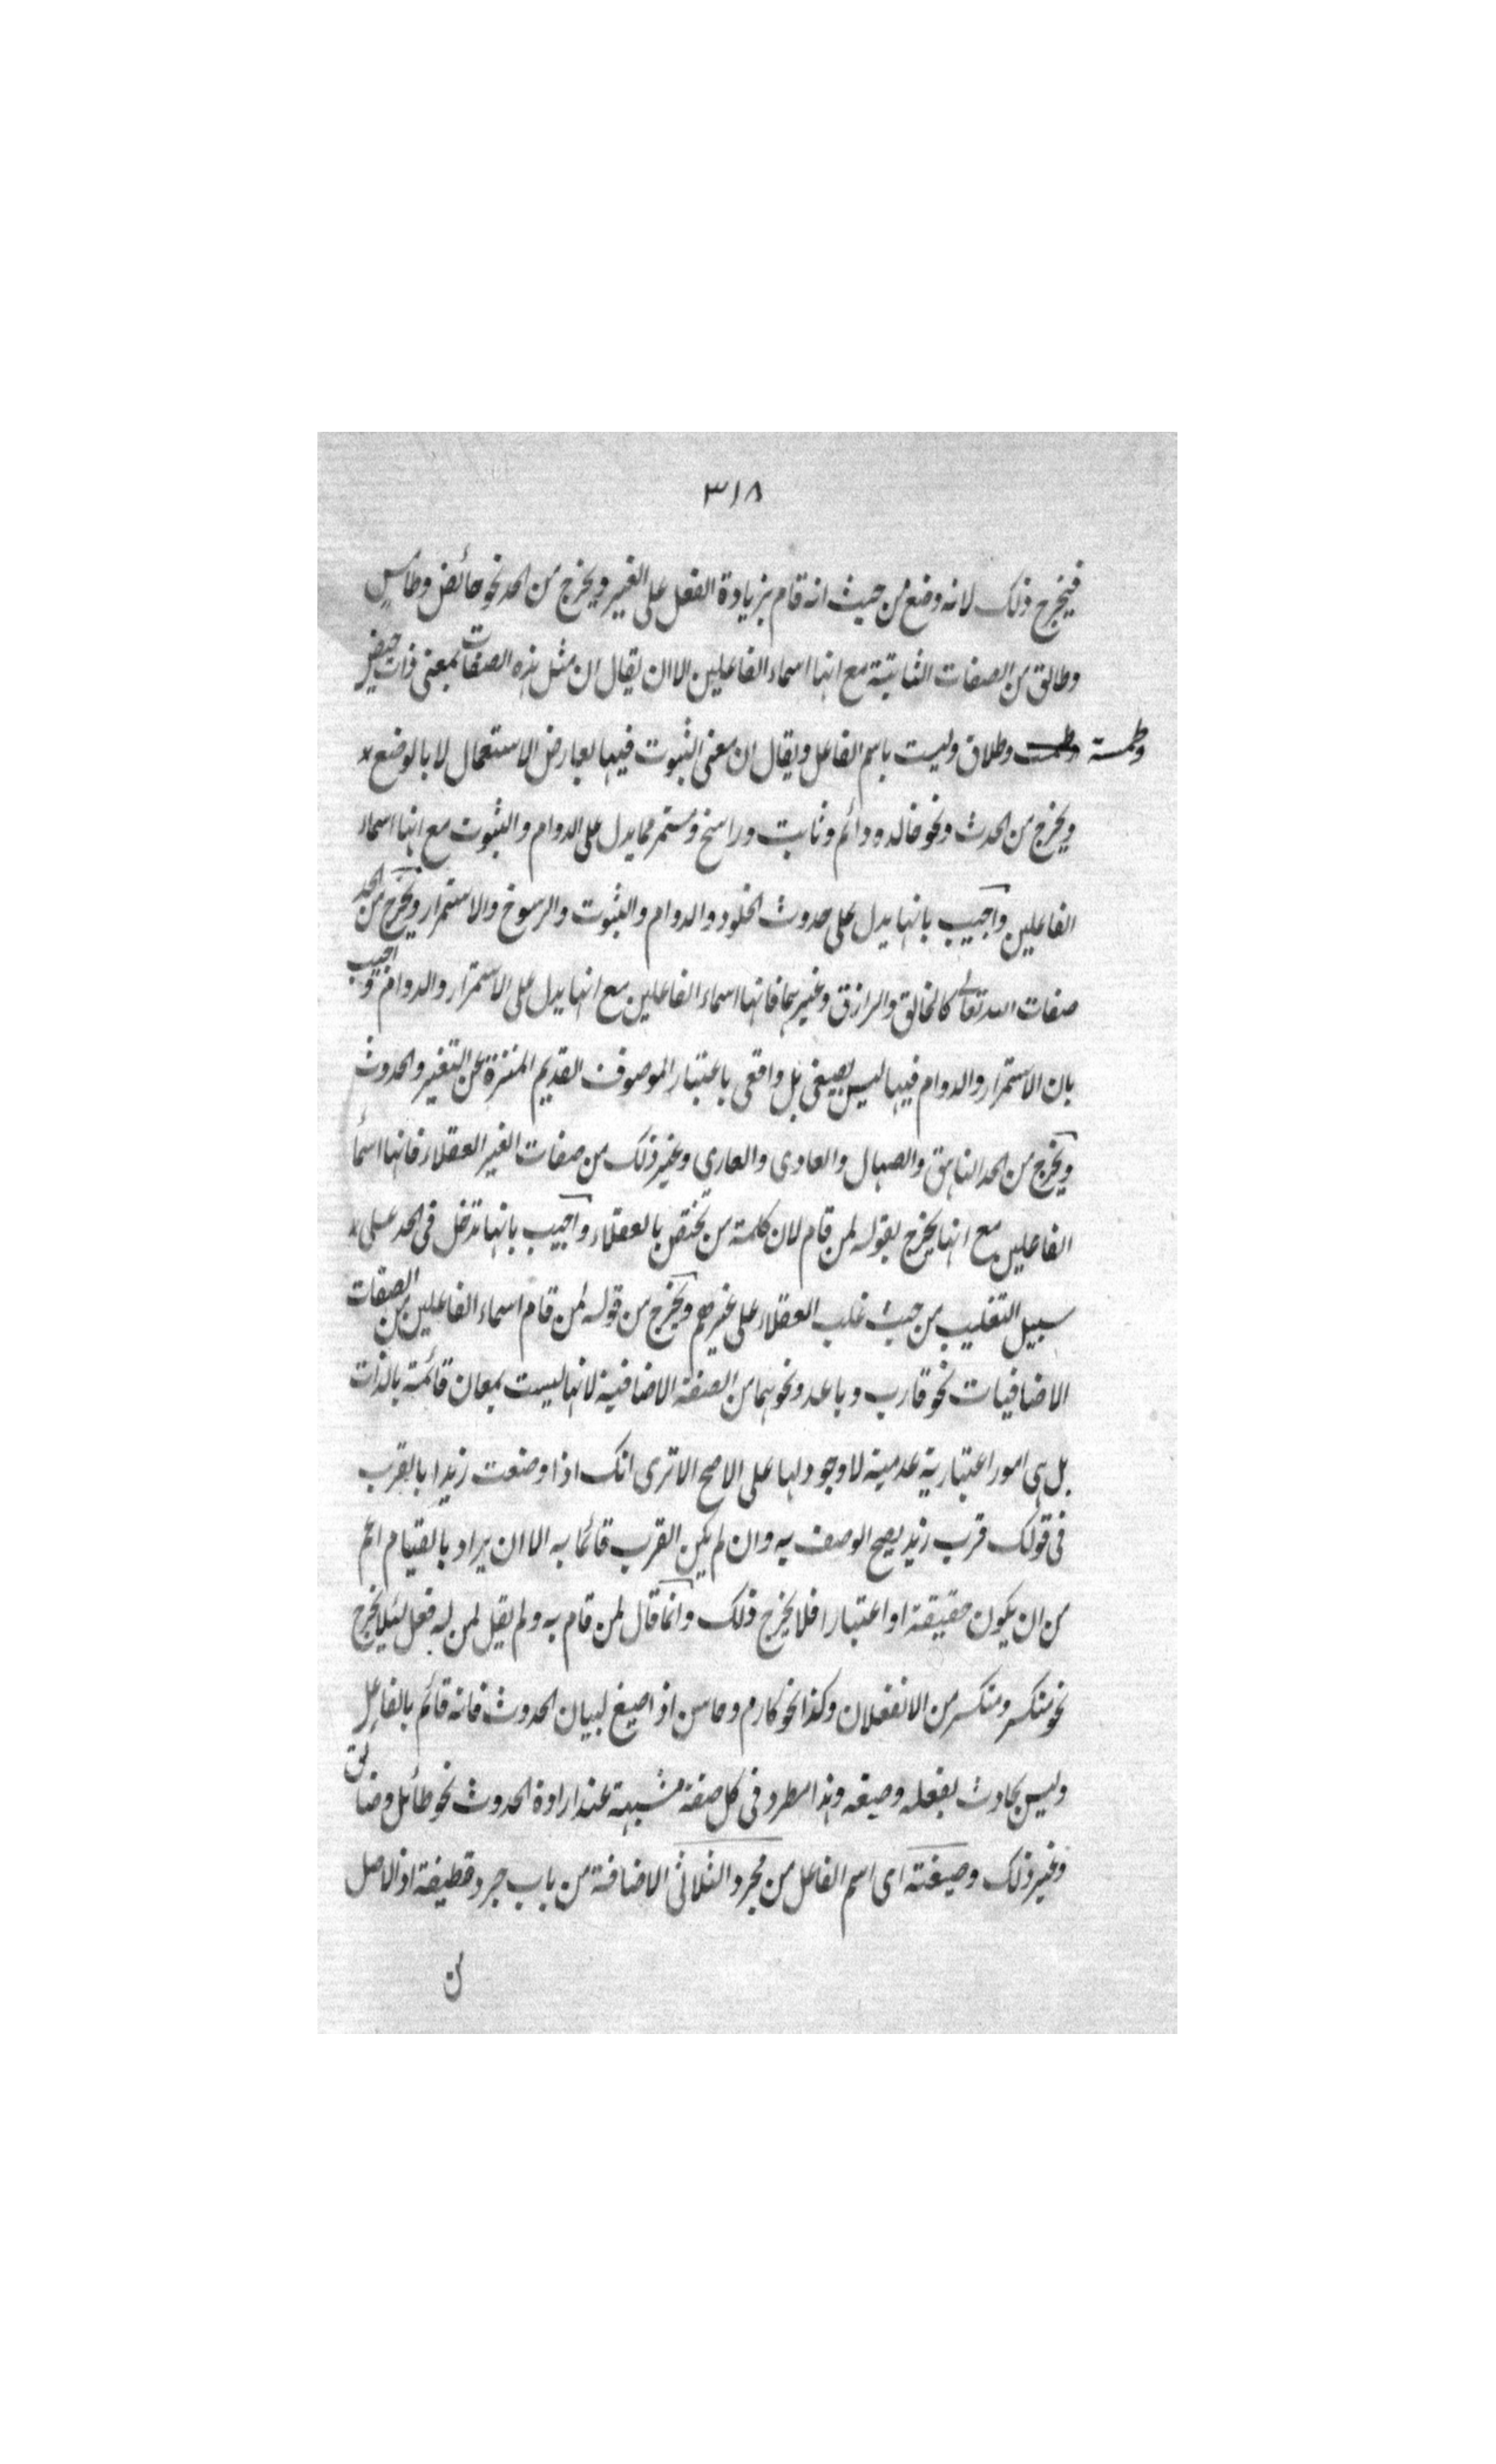 ٣١٨
فيخرج ذلك لانه وضع من حيث انه قام بزيادة الفعل على الغير ويخرج من الحد نحو حائض وطامس
وطالق من الصفات الثابتة مع انها اسماء الفاعلين الا ان يقال ان مثل هذه الصفات بمعنى ذات حيض
وطمسة وطلاق وليست باسم الفاعل ويقال ان معنى الثبوت فيها بعارض الاستعمال لا بالوضع
ويخرج من الحدث ونحو خالد ودائم وثابت وراسخ ومستمر مما يدل على الدوام والثبوت مع انها اسماء
الفاعلين واجيب بانها يدل على حدوث الخلود والدوام والثبوت والرسوخ والاستمرار ويخرج من الحد
صفات الله تعالى كالخالق والرازق وغيرهما فانها اسماء الفاعلين مع انها يدل على الاستمرار والدوام واجيب
بان الاستمرار والدوام فيها ليس بصيغى بل واقعى باعتبار الموصوف القديم المنزه عن التغير والحدوث
ويخرج من الحد الناهق والصهال والعاوى والعارى وغير ذلك من صفات الغير العقلاء فانها اسما
الفاعلين مع انها يخرج بقوله لمن قام لان كلمة من تختص بالعقلاء واجيب بانها تدخل فى الحد على
سبيل التغليب من حيث غلب العقلاء على غيرهم ويخرج من قوله لمن قام اسماء الفاعلين من الصفات
الاضافيات نحو قارب وباعد ونحوهما من الصفة الاضافية لانها ليست بمعان قائمة بالذات
بل هى امور اعتبارية عدمية لا وجود لها على الاصح الا ترى انك اذا وصفت زيدا بالقرب
فى قولك قرب زيد يصح الوصف به وان لم يكن القرب قائما به الا ان يراد بالقيام اعم
من ان يكون حقيقة او اعتبارا فلا يخرج ذلك وانما قال لمن قام به ولم يقل لمن له فعل لئلا يخرج
نحو منكسر ومتكسر من الانفعلان وكذا نحو كارم وحاسن اذا صيغ لبيان الحدوث فانه قائم بالفاعل
وليس بحادث بفعله وصيغه وهذا مطرد فى كل صفة مشبهة عند ارادة الحدوث نحو طائل وضائق
وغير ذلك وصيغته اى اسم الفاعل من مجرد الثلاثى الاضافة من باب جرد قطيفة اذ الاصل